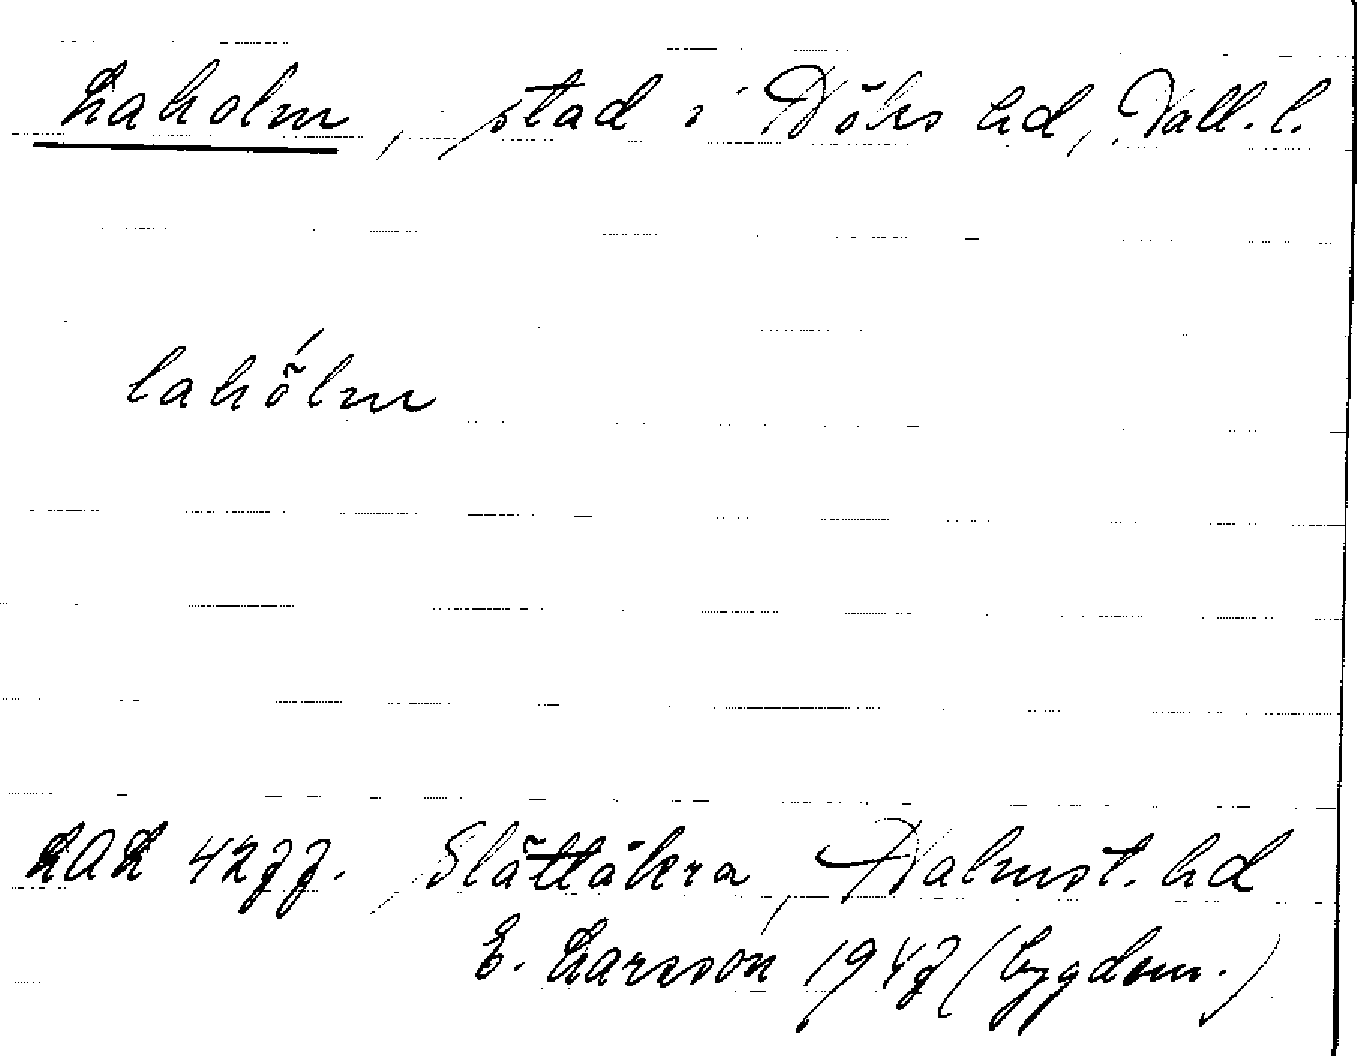 Laholm, stad i Höks hd, Hall. l.
lahõ´lm
LAL 4277. Slättåkra, Halmst. hd
E. Larsson 1947 (bygdem.)